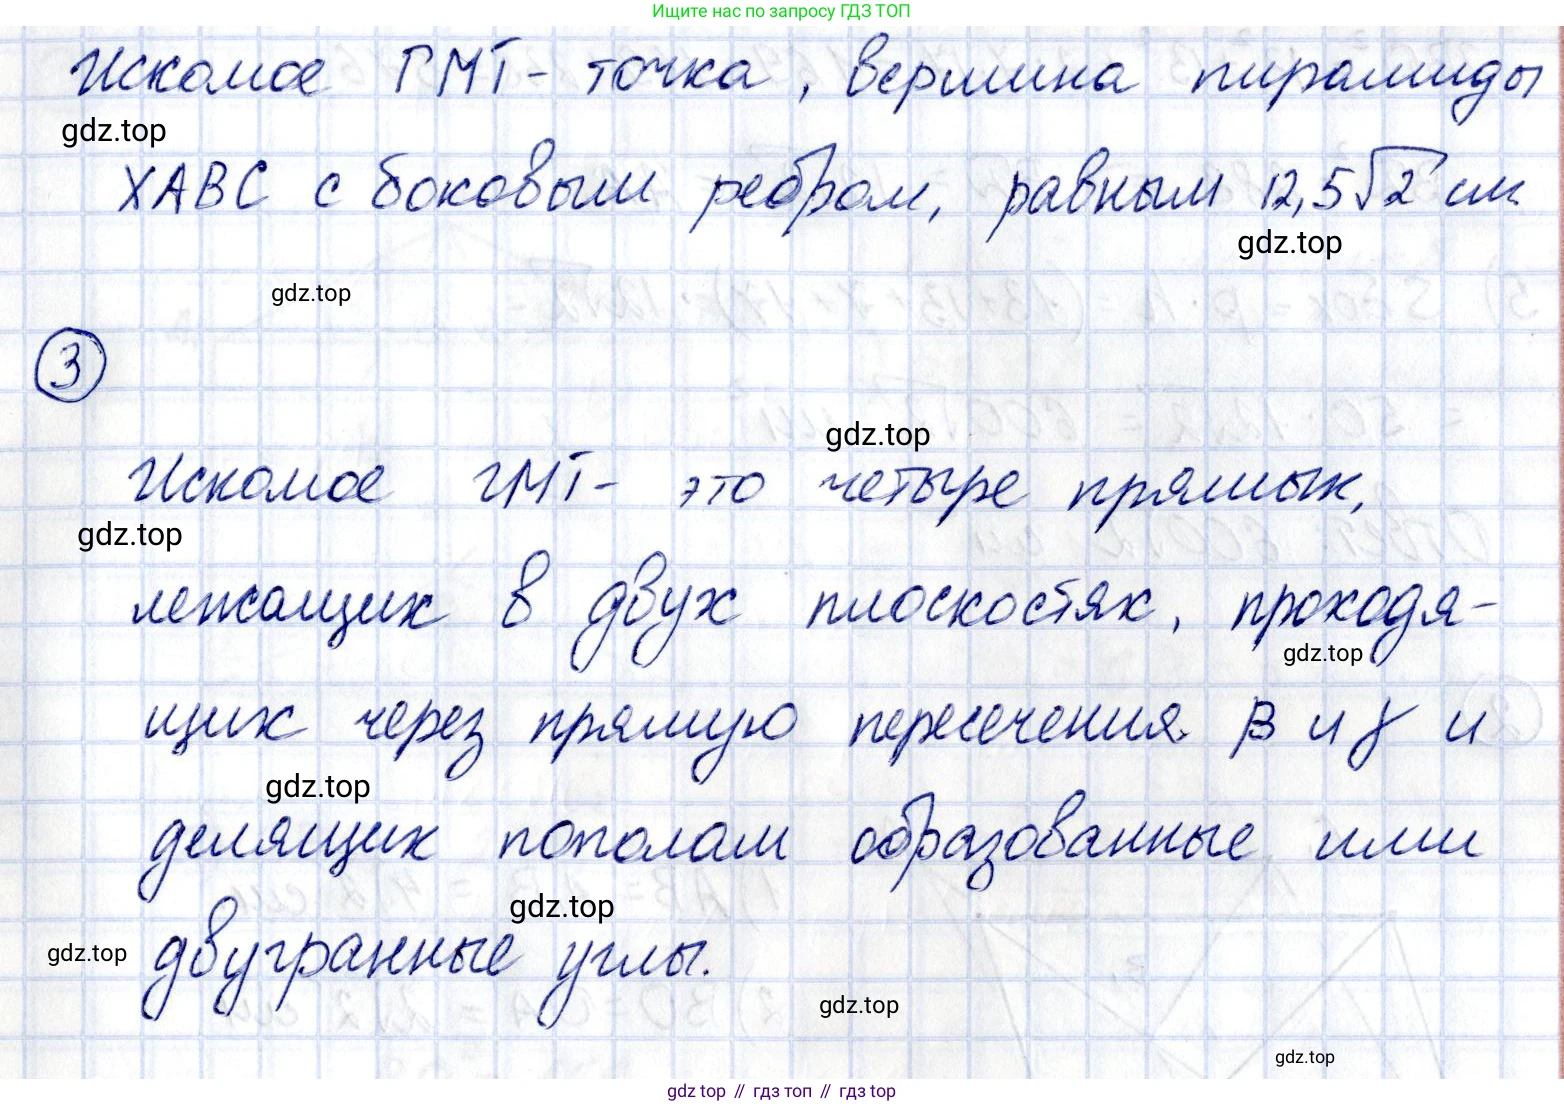 Ищите нас по запросу ГДЗ ТОП
Искомое ГМТ- точка, вершина пирамиды
gdz.top
ХАВС с боковым ребром, равным 12,5√2 см
gdz.top
gdz.top
3
gdz.top
Искомое ГМТ- это четыре прямых,
gdz.top
лежащих в двух плоскостях, проходя-
gdz.top
щих через прямую пересечения β и γ и
gdz.top
делящих пополам образованные ими
gdz.top
gdz.top
двугранные углы.
gdz.top
gdz.top
gdz.top // гдз топ // гдз top